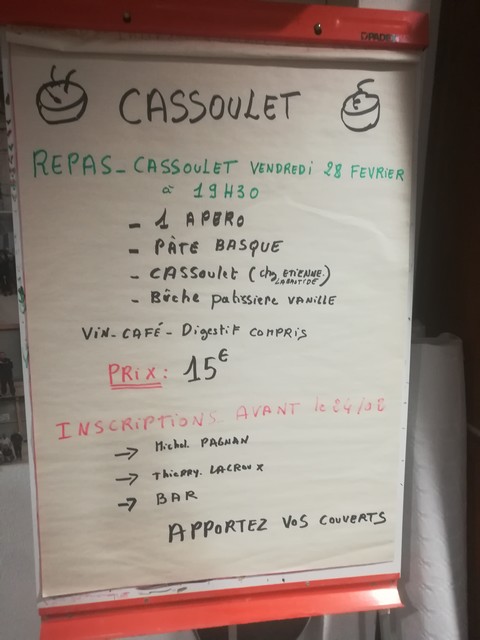 CASSOULET
REPAS-CASSOULET VENDREDI 28 FEVRIER
à 19H30
- 1 APERO
- PÂTE BASQUE
- CASSoulet (chez ETIENNE. LABATIDE)
- Bûche patissiere VANILLE
VIN-CAFÉ-Digestif COMPRIS
PRIX: 15€
INSCRIPTIONS AVANT le 24/02
→ Michel PAGNAN
→ Thierry. LACROUX
→ BAR
APPORTEZ VOS COUVERTS